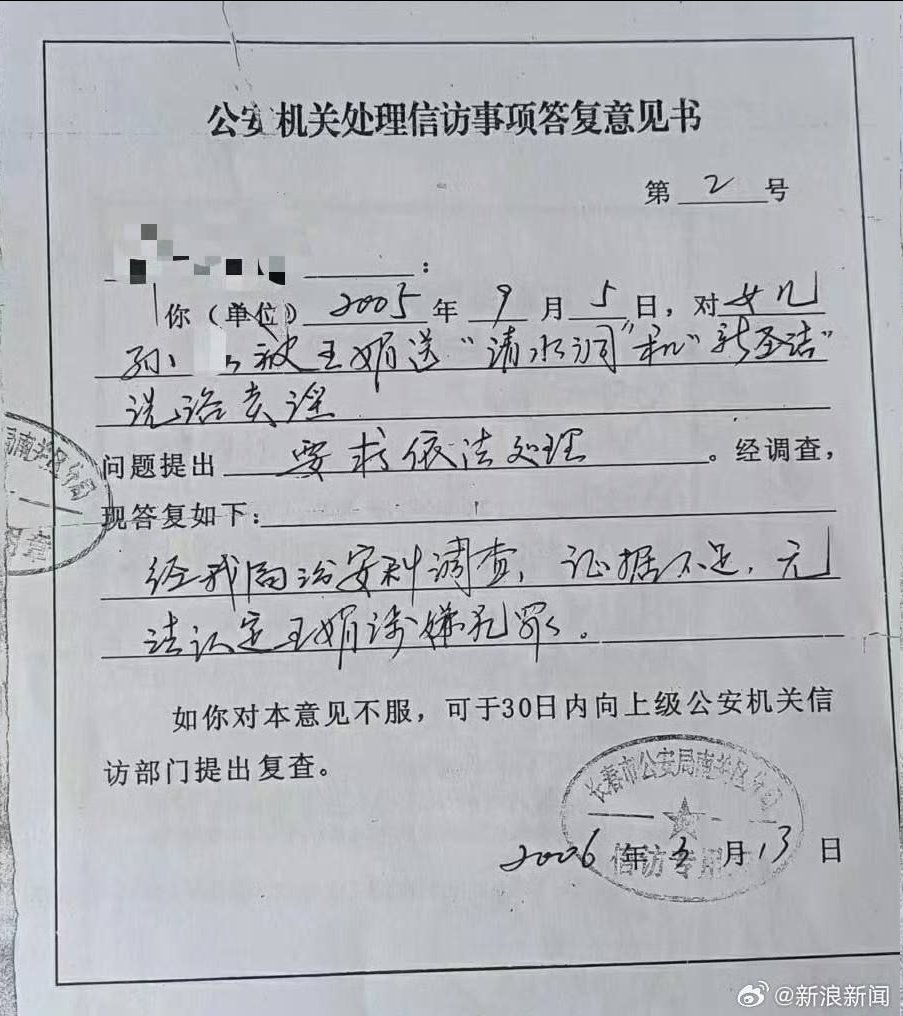 公安机关处理信访事项答复意见书
第 2 号
：
你（单位）2005年9月5日，对女儿
孙 被王媚送“清水洞”和“新圣洁”
洗浴卖淫
局南关区分局
用章
问题提出 要求依法处理 。经调查，
现答复如下：
经我局治安科调查，证据不足，无
法认定王媚涉嫌犯罪。
如你对本意见不服，可于30日内向上级公安机关信
访部门提出复查。
长春市公安局南关区分局
信访专用
2006年3月13日
@新浪新闻